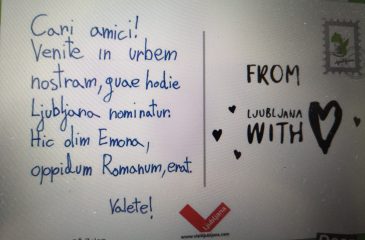 Cari amici!
Venite in urbem
nostram, quae hodie
Ljubljana nominatur.
Hic olim Emona,
oppidum Romanum, erat.
Valete!
FROM
LJUBLJANA
WITH
Ljubljana
www.visitljubljana.com